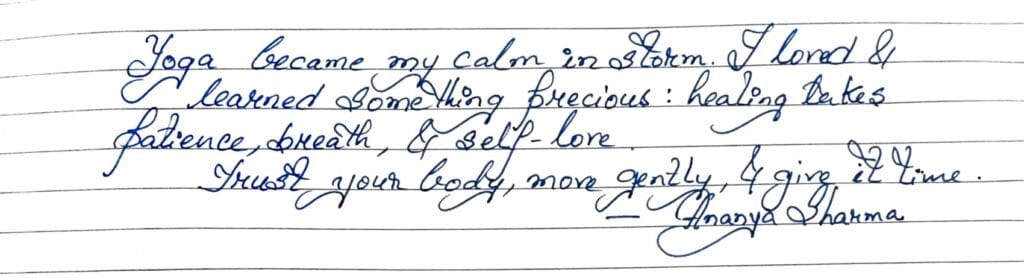 Yoga became my calm in storm. I loved &
learned something precious : healing takes
patience, breath, & self-love.
Trust your body, move gently, & give it time.
— Ananya Sharma